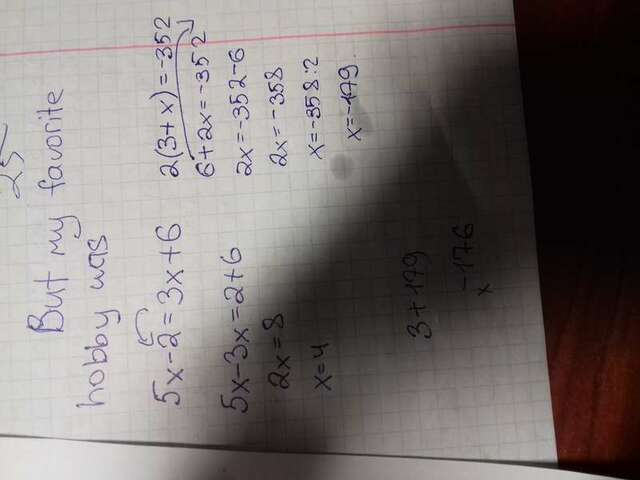 25
But my favorite
hobby was
5x-2=3x+6
5x-3x=2+6
2x=8
x=4
2(3+x)=-352
6+2x=-352
2x=-352-6
2x=-358
x=-358:2
x=-179.
3+179
-176
x